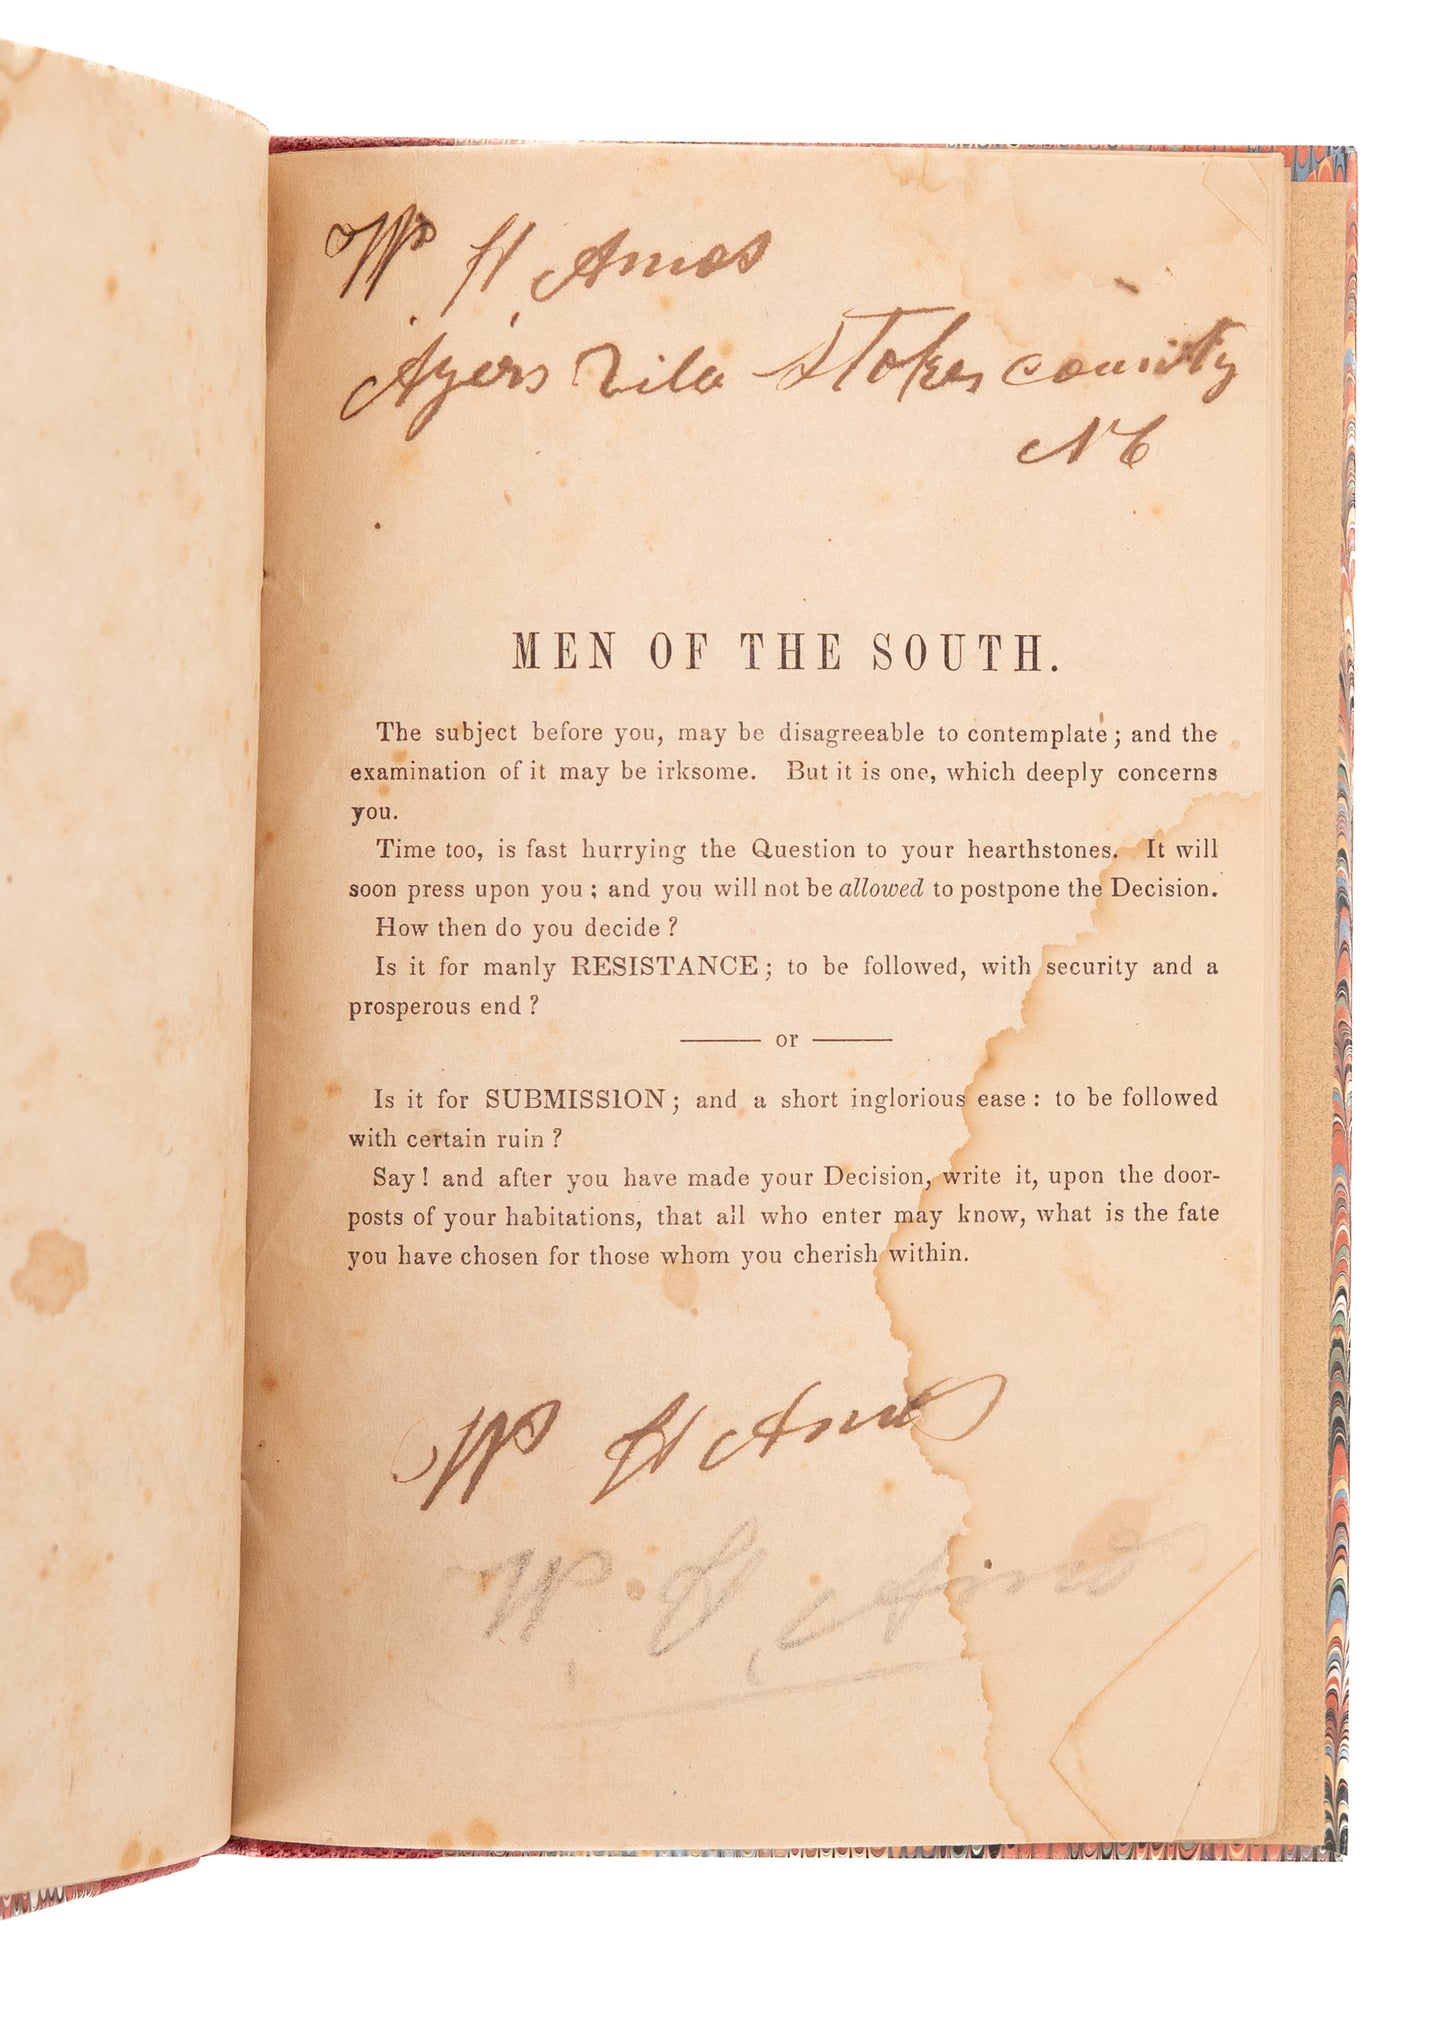 W H Amos
Ayers Vila Stokes county
N C
MEN OF THE SOUTH.
The subject before you, may be disagreeable to contemplate; and the
examination of it may be irksome. But it is one, which deeply concerns
you.
Time too, is fast hurrying the Question to your hearthstones. It will
soon press upon you; and you will not be allowed to postpone the Decision.
How then do you decide?
Is it for manly RESISTANCE; to be followed, with security and a
prosperous end?
—— or ——
Is it for SUBMISSION; and a short inglorious ease: to be followed
with certain ruin?
Say! and after you have made your Decision, write it, upon the door-
posts of your habitations, that all who enter may know, what is the fate
you have chosen for those whom you cherish within.
W H Amos
W. H Amos